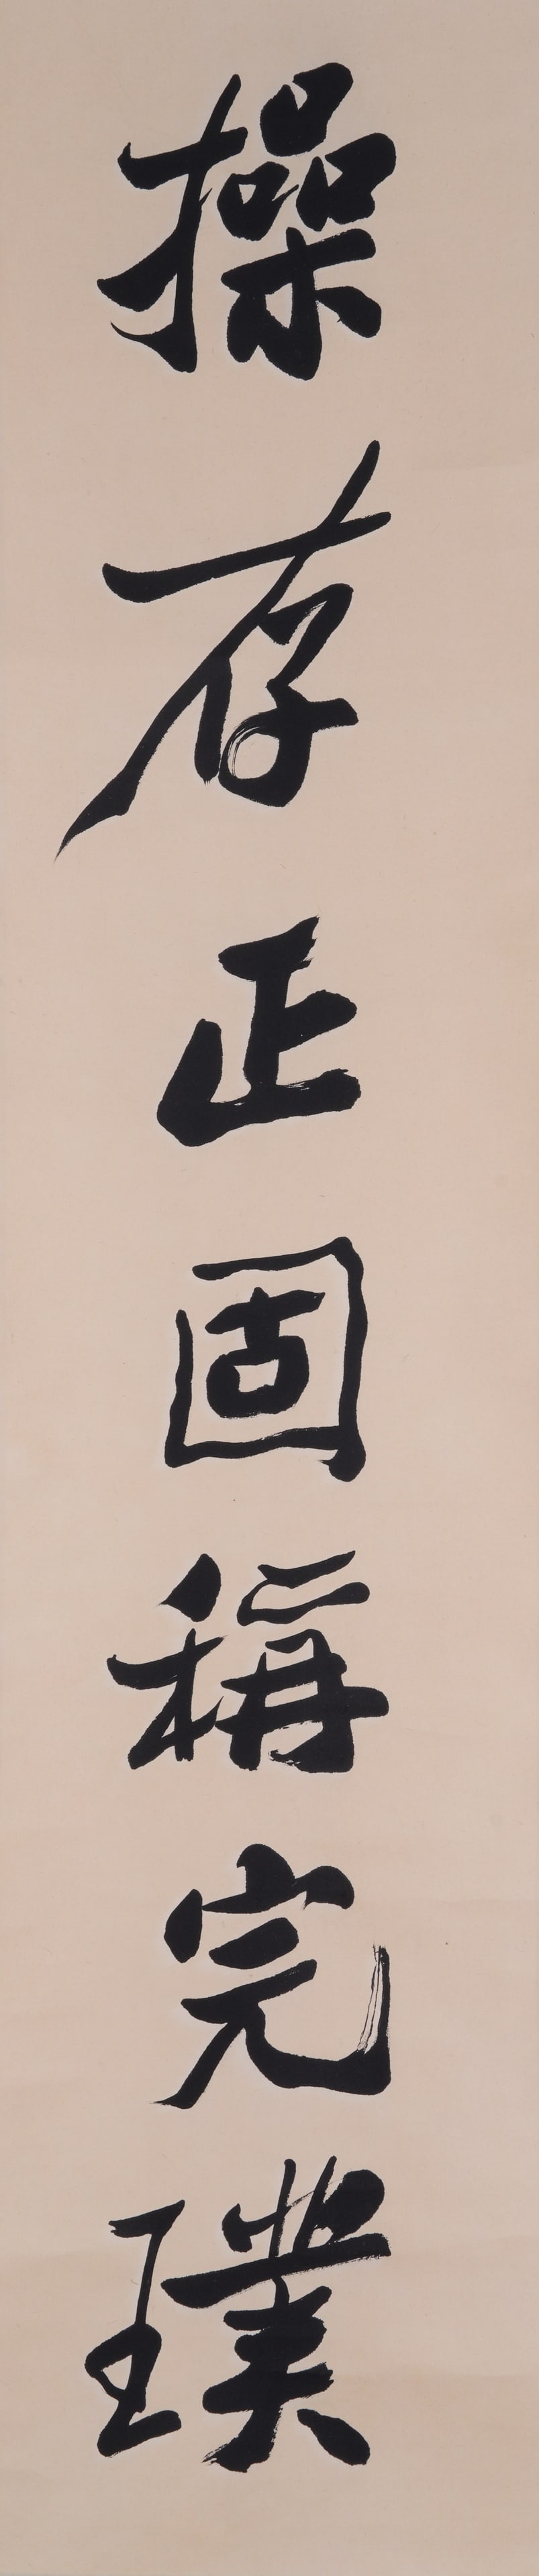 操存正固稱完璞